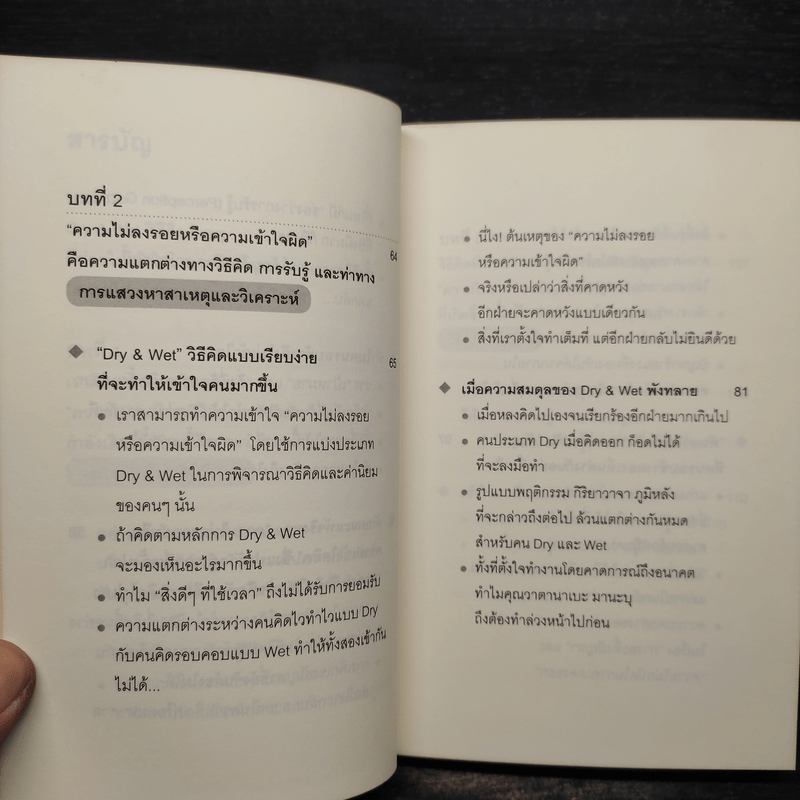 สารบัญ
บทที่ 2
“ความไม่ลงรอยหรือความเข้าใจผิด” 64
คือความแตกต่างทางวิธีคิด การรับรู้ และท่าทาง
การแสวงหาสาเหตุและวิเคราะห์
◆ “Dry & Wet” วิธีคิดแบบเรียบง่าย 65
ที่จะทำให้เข้าใจคนมากขึ้น
● เราสามารถทำความเข้าใจ “ความไม่ลงรอย
หรือความเข้าใจผิด” โดยใช้การแบ่งประเภท
Dry & Wet ในการพิจารณาวิธีคิดและค่านิยม
ของคนๆ นั้น
● ถ้าคิดตามหลักการ Dry & Wet
จะมองเห็นอะไรมากขึ้น
● ทำไม “สิ่งดีๆ ที่ใช้เวลา” ถึงไม่ได้รับการยอมรับ
● ความแตกต่างระหว่างคนคิดไวทำไวแบบ Dry
กับคนคิดรอบคอบแบบ Wet ทำให้ทั้งสองเข้ากัน
ไม่ได้...
● นี่ไง! ต้นเหตุของ “ความไม่ลงรอย
หรือความเข้าใจผิด”
● จริงหรือเปล่าว่าสิ่งที่คาดหวัง
อีกฝ่ายจะคาดหวังแบบเดียวกัน
● สิ่งที่เราตั้งใจทำเต็มที่ แต่อีกฝ่ายกลับไม่ยินดีด้วย
◆ เมื่อความสมดุลของ Dry & Wet พังทลาย 81
● เมื่อหลงคิดไปเองจนเรียกร้องอีกฝ่ายมากเกินไป
● คนประเภท Dry เมื่อคิดออก ก็อดไม่ได้
ที่จะลงมือทำ
● รูปแบบพฤติกรรม กิริยาวาจา ภูมิหลัง
ที่จะกล่าวถึงต่อไป ล้วนแตกต่างกันหมด
สำหรับคน Dry และ Wet
● ทั้งที่ตั้งใจทำงานโดยคาดการณ์ถึงอนาคต
ทำไมคุณวาตานาเบะ มานะบุ
ถึงต้องทำล่วงหน้าไปก่อน